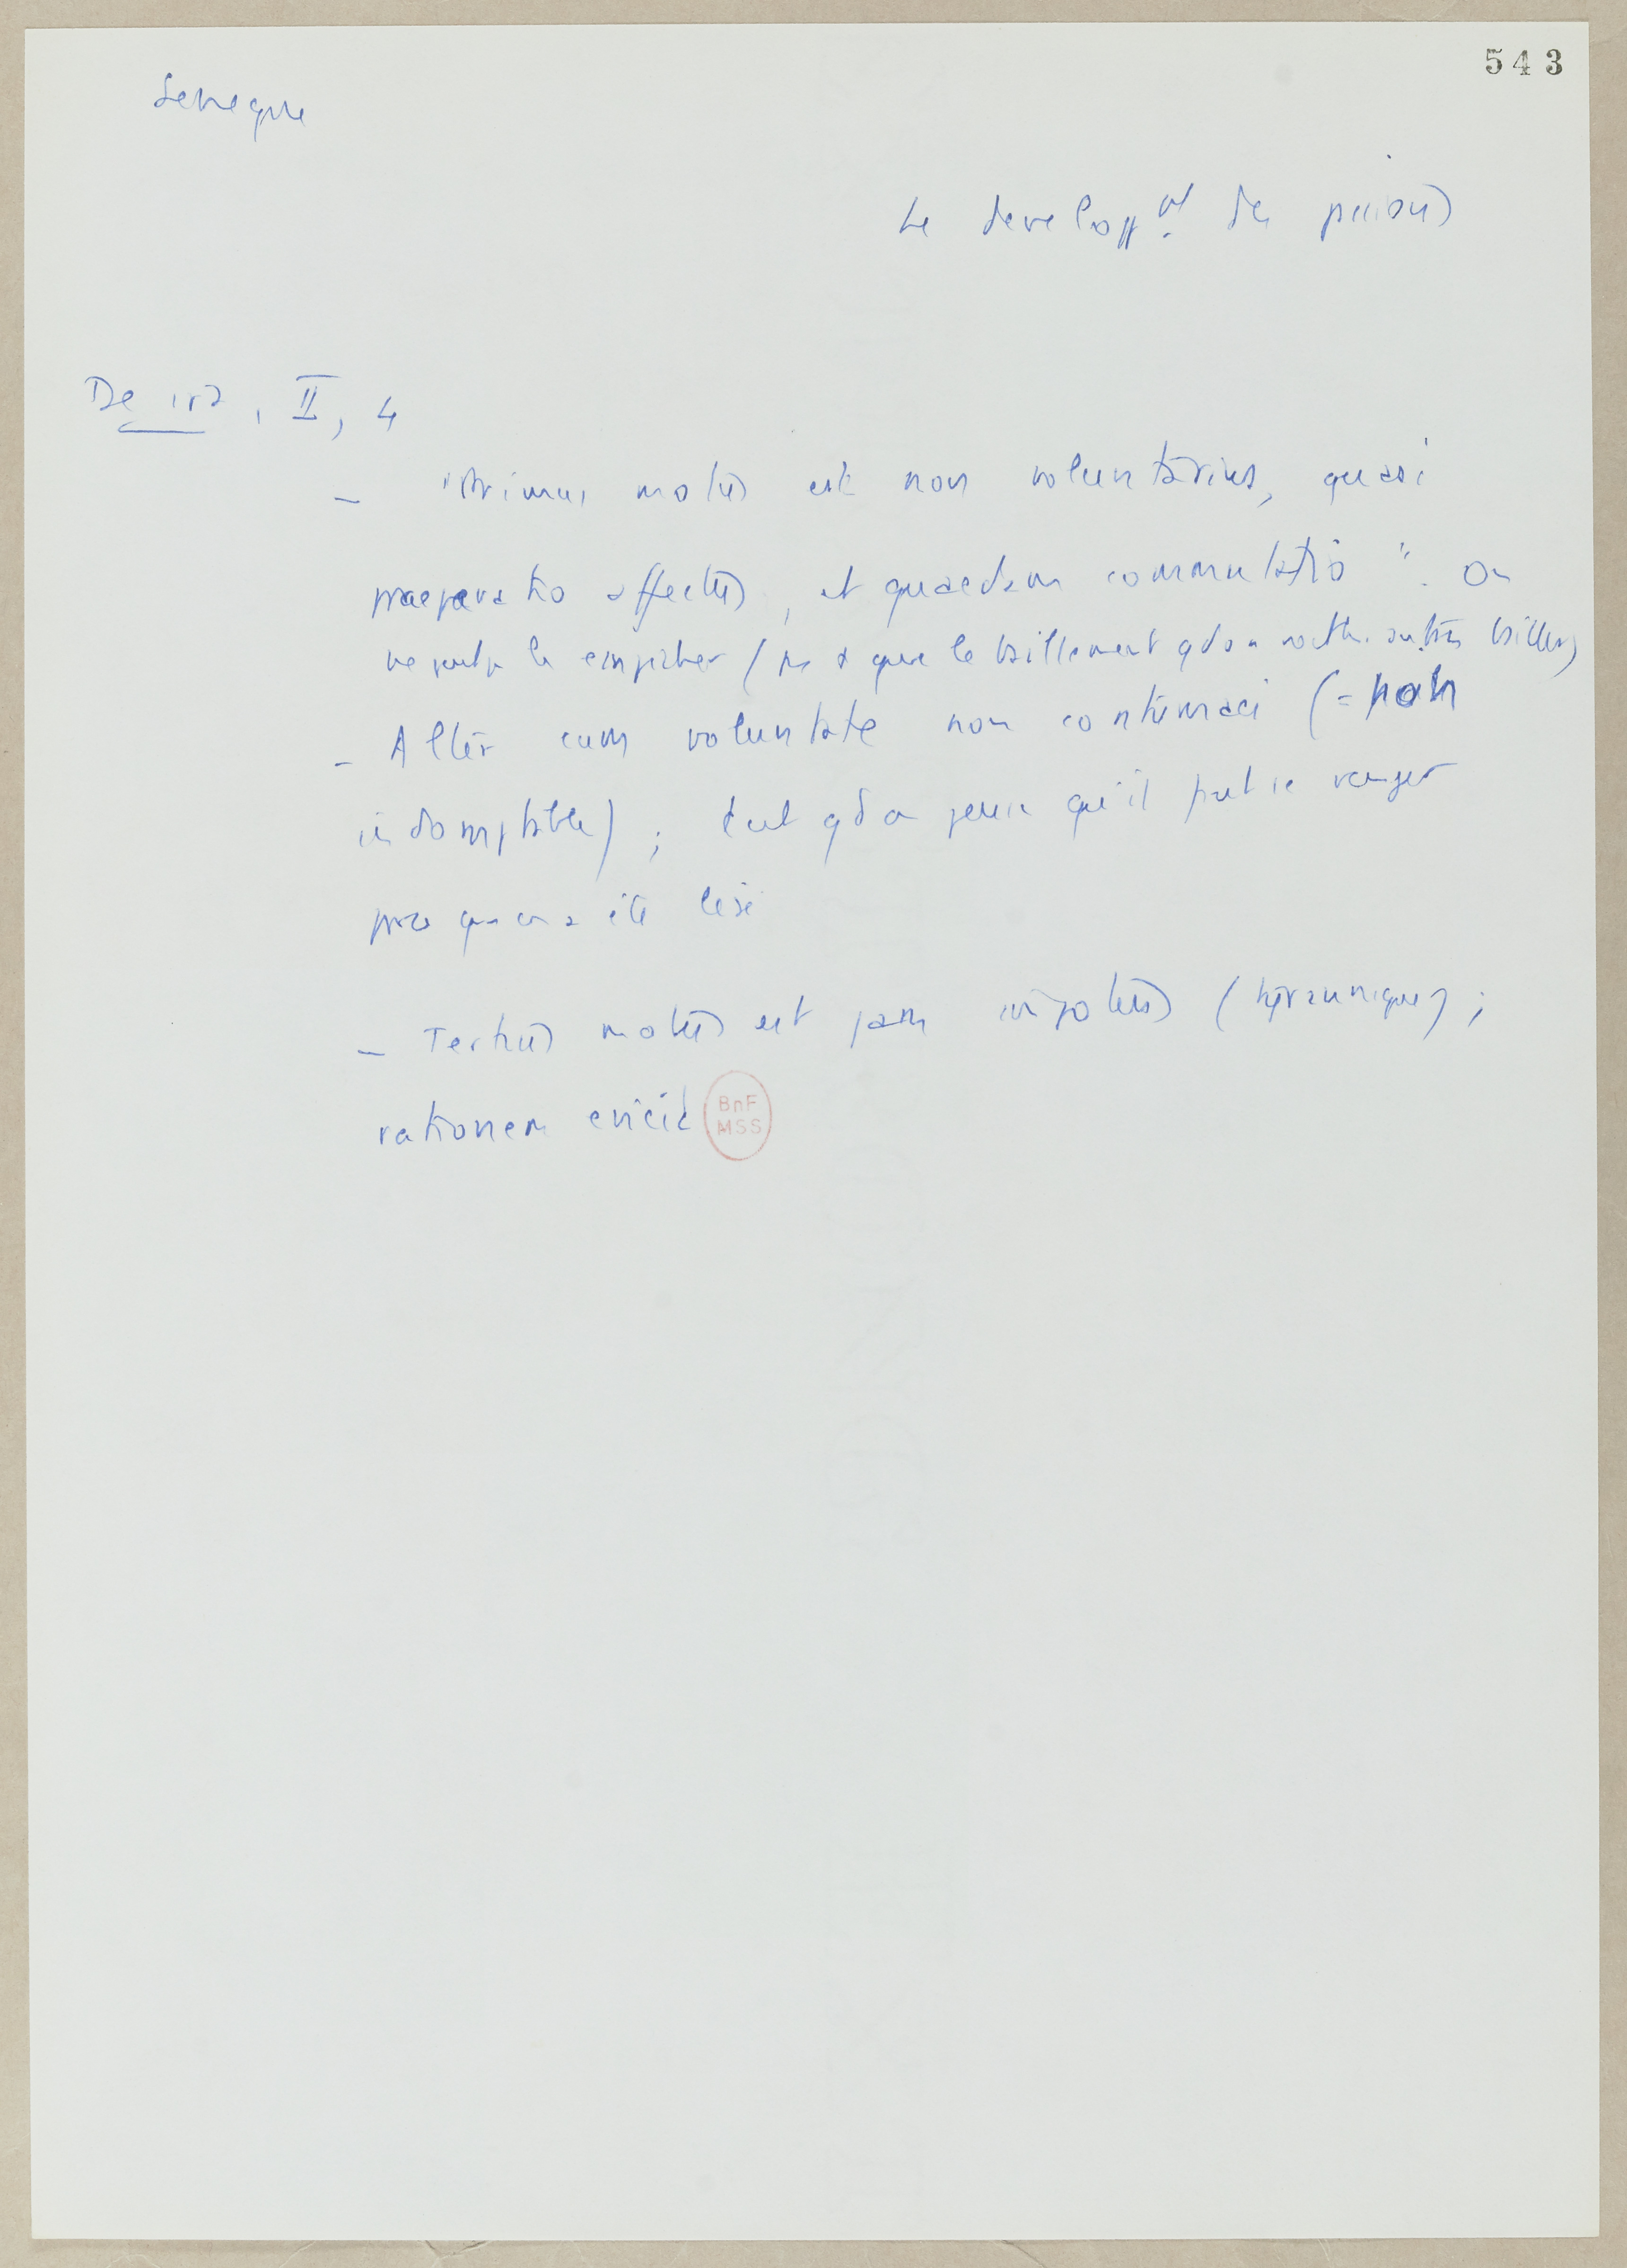 543
Seneque
Le developpt des passions
De ira, II, 4
- "Primus motus est non voluntarius, quasi
praeparatio affectus, et quaedam comminatio". On
ne peut pas l'empêcher (pas + que le baillement qd on voit les autres bailler)
- Alter cum voluntate non contumaci (= non
indomptable) ; c'est qd on pense qu'il faut se venger
parce qu'on a été lésé
- Tertius motus est jam impotens (tyrannique) ;
rationem evicit
BnF
MSS